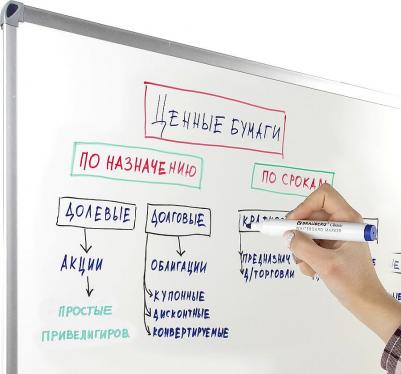 ЦЕННЫЕ БУМАГИ
ПО НАЗНАЧЕНИЮ
ПО СРОКАМ
ДОЛЕВЫЕ
ДОЛГОВЫЕ
АКЦИИ
ОБЛИГАЦИИ
ПРОСТЫЕ
ПРИВЕЛИГИРОВ.
КУПОННЫЕ
ДИСКОНТНЫЕ
КОНВЕРТИРУЕМЫЕ
ПРЕДНАЗНАЧ
Д/ТОРГОВЛИ
BRAUBERG
WHITEBOARD MARKER